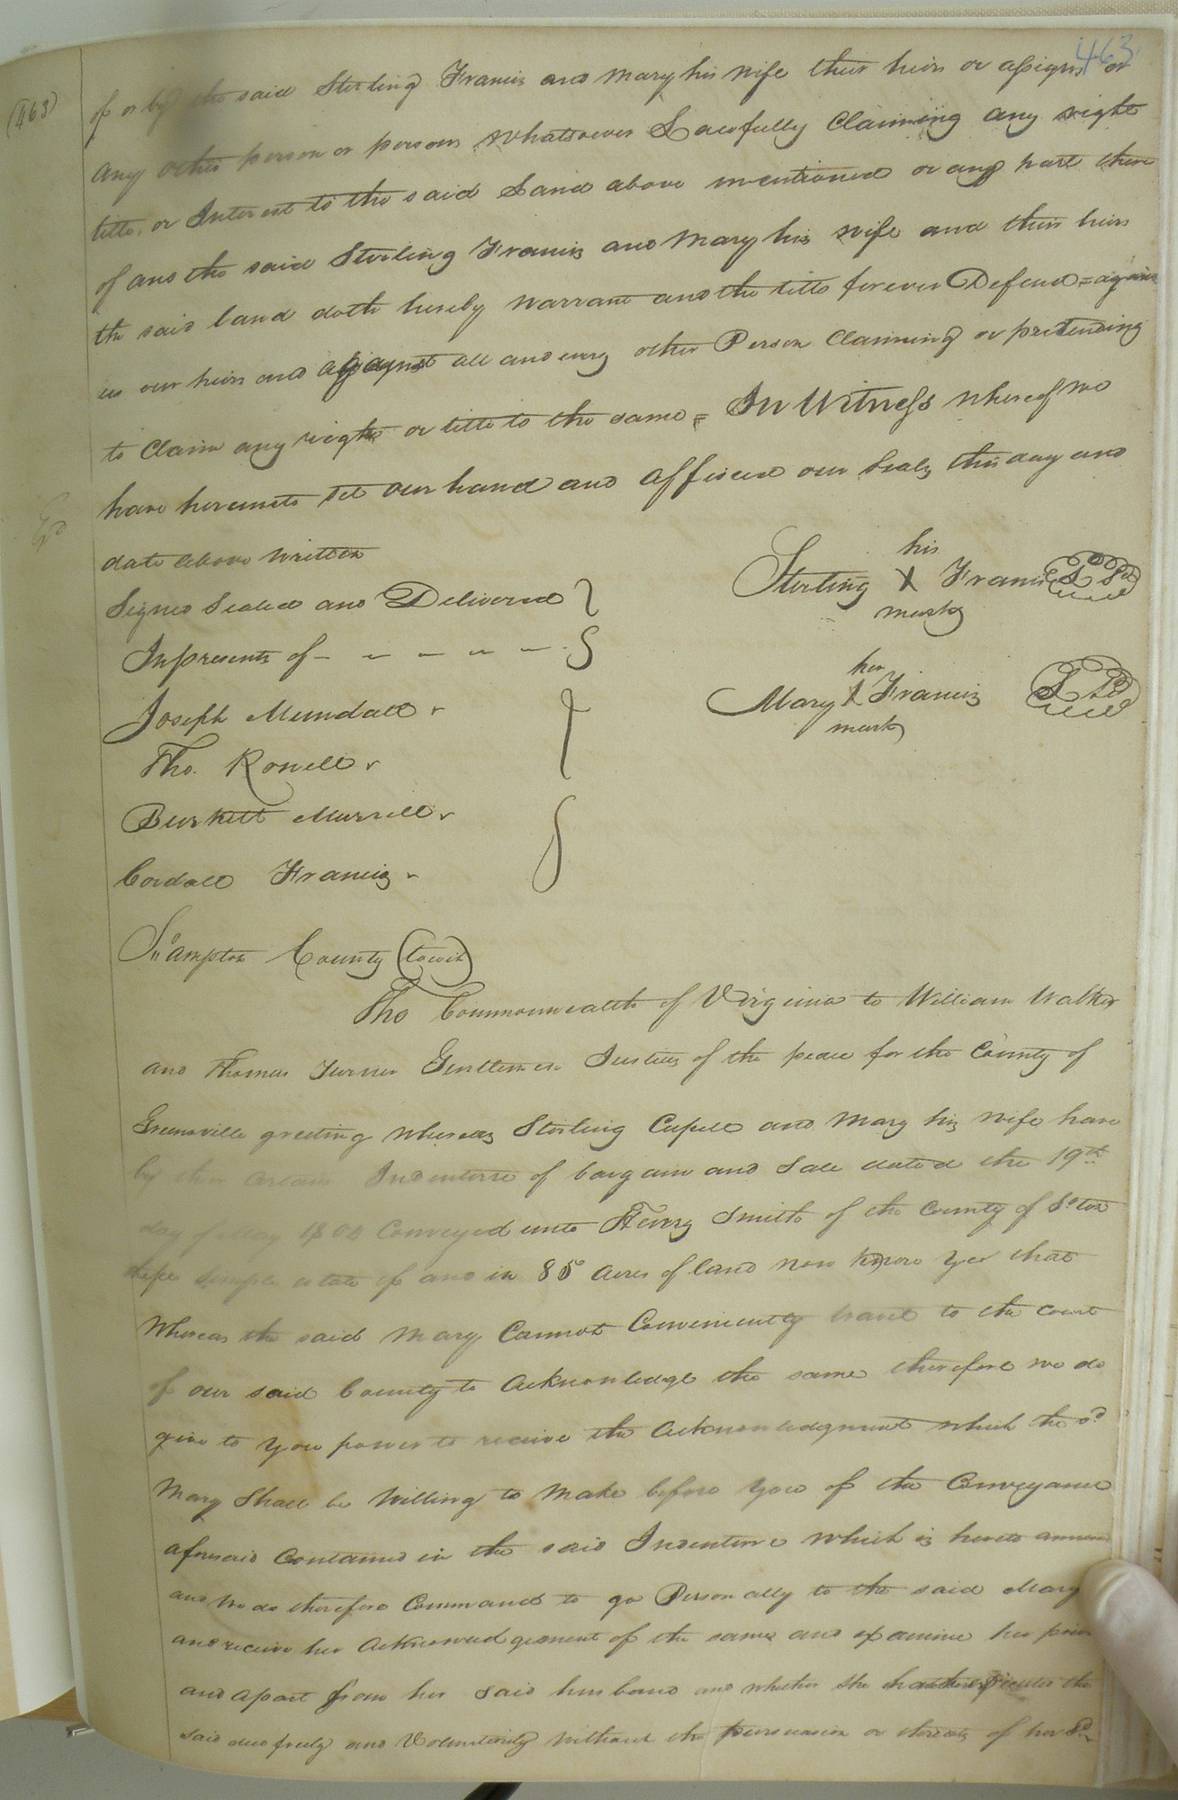 463
(463)
of or by the said Sterling Francis and Mary his wife their heirs or assigns or
any other person or persons whatsoever Lawfully Claiming any right
title, or Interest to the said Land above mentioned or any part there
of and the said Sterling Francis and Mary his wife and their heirs
the said land doth hereby warrant and the title forever Defend = against
us our heirs and against all and every other Person Claiming or pretending
to Claim any right or title to the same = In Witness whereof we
have hereunto set our hand and affixed our seals this day and
date above written
Signed Sealed and Delivered
Inpresents of - - - - - -
Joseph Mundall
Tho. Rowell
Burkett Murrell
Cordall Francis
his
Sterling X Francis L S
mark
her
Mary X Francis L S
mark
So Hampton County (towit)
The Commonwealth of Virginia to William Walker
and Thomas Turner Gentlemen Justices of the peace for the County of
Greensville greeting whereas Sterling Capell and Mary his wife have
by their certain Indenture of bargain and Sale dated the 19th
day of May 1800 Conveyed unto Henry Smith of the County of So ton
simple estate of and in 85 acres of land now know yee that
Whereas the said Mary Cannot Conveniently travel to the court
of our said County to Acknowledge the same therefore we do
give to you power to receive the Acknowledgment which the sd
Mary Shall be Willing to Make before you of the Conveyance
aforesaid Contained in the said Indenture which is hereto
and We do therefore Command to go Personally to the said Mary
and receive her Acknowledgement of the same and examine her
and apart from her said husband and whether she the
said deed freely and Voluntarily without the persuasion or threats of her Sd